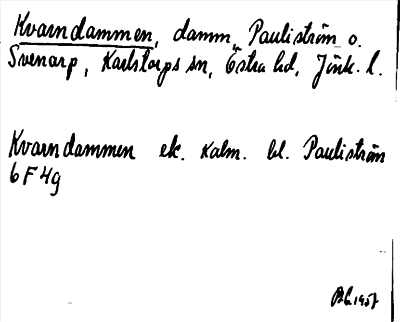 Kvarndammen, damm, Pauliström o.
Svenarp, Karlstorps sn, Östra hd, Jönk. l.
Kvarndammen ek. Kalm. bl. Pauliström
6F4g